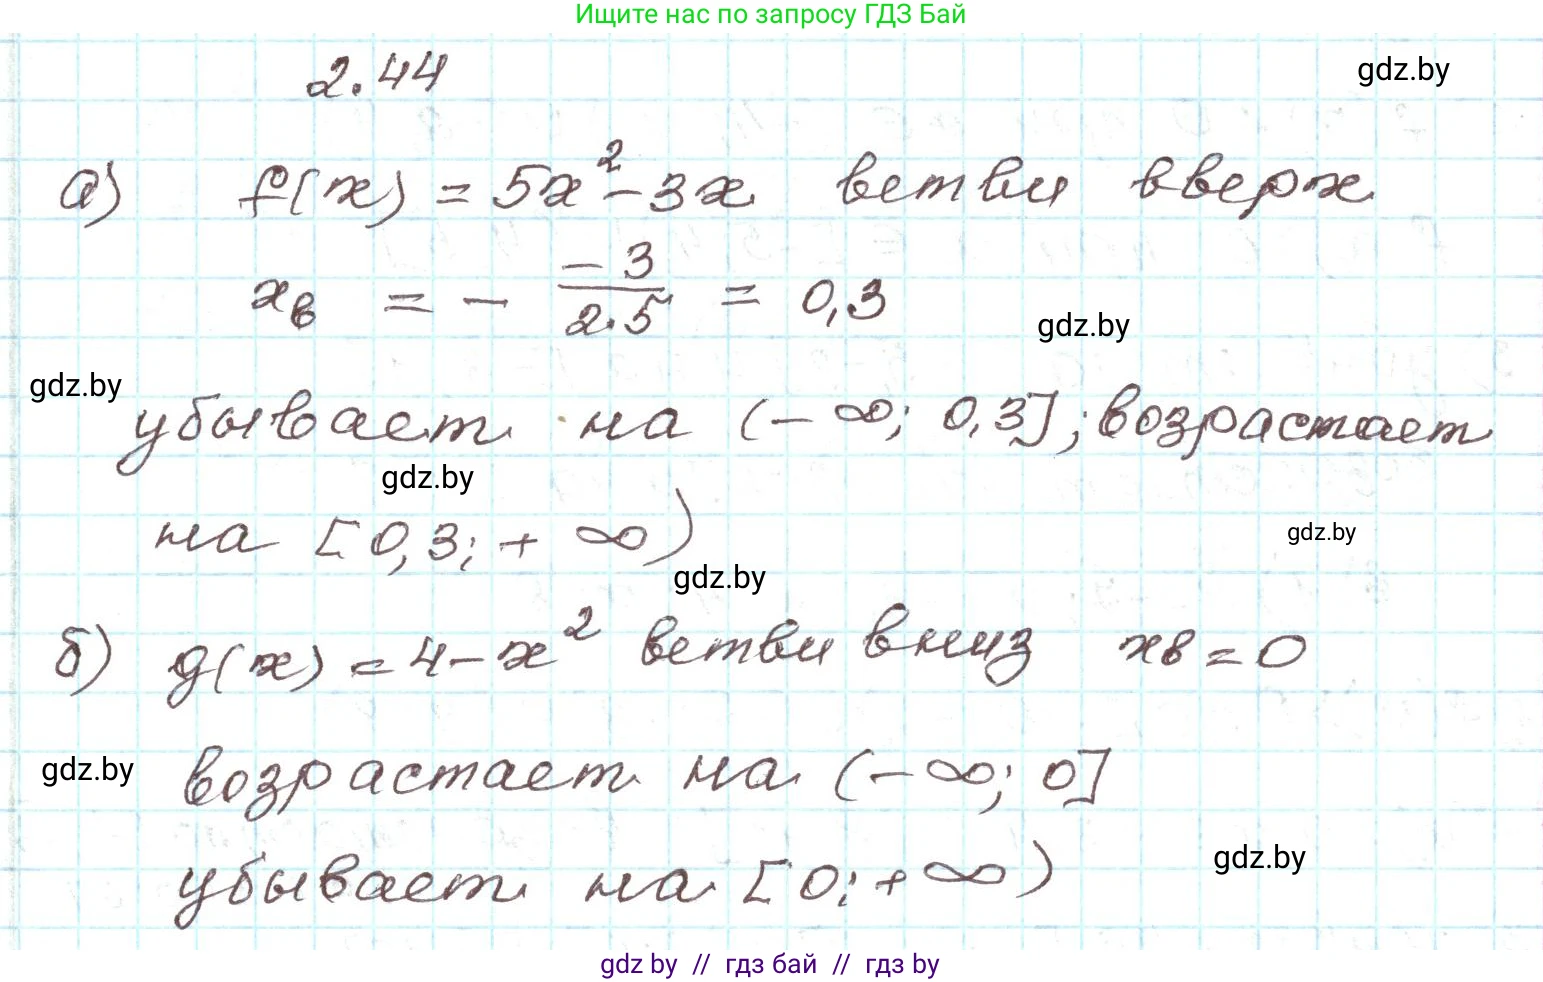 Ищите нас по запросу ГДЗ Бай
2.44
gdz.by
а) f(x) = 5x² - 3x ветви вверх
xв = - -3/2·5 = 0,3
gdz.by
gdz.by
убывает на (-∞; 0,3]; возрастает
gdz.by
на [0,3; +∞)
gdz.by
gdz.by
б) g(x) = 4 - x² ветви вниз xв = 0
gdz.by
возрастает на (-∞; 0]
gdz.by
убывает на [0; +∞)
gdz by // гдз бай // гдз by